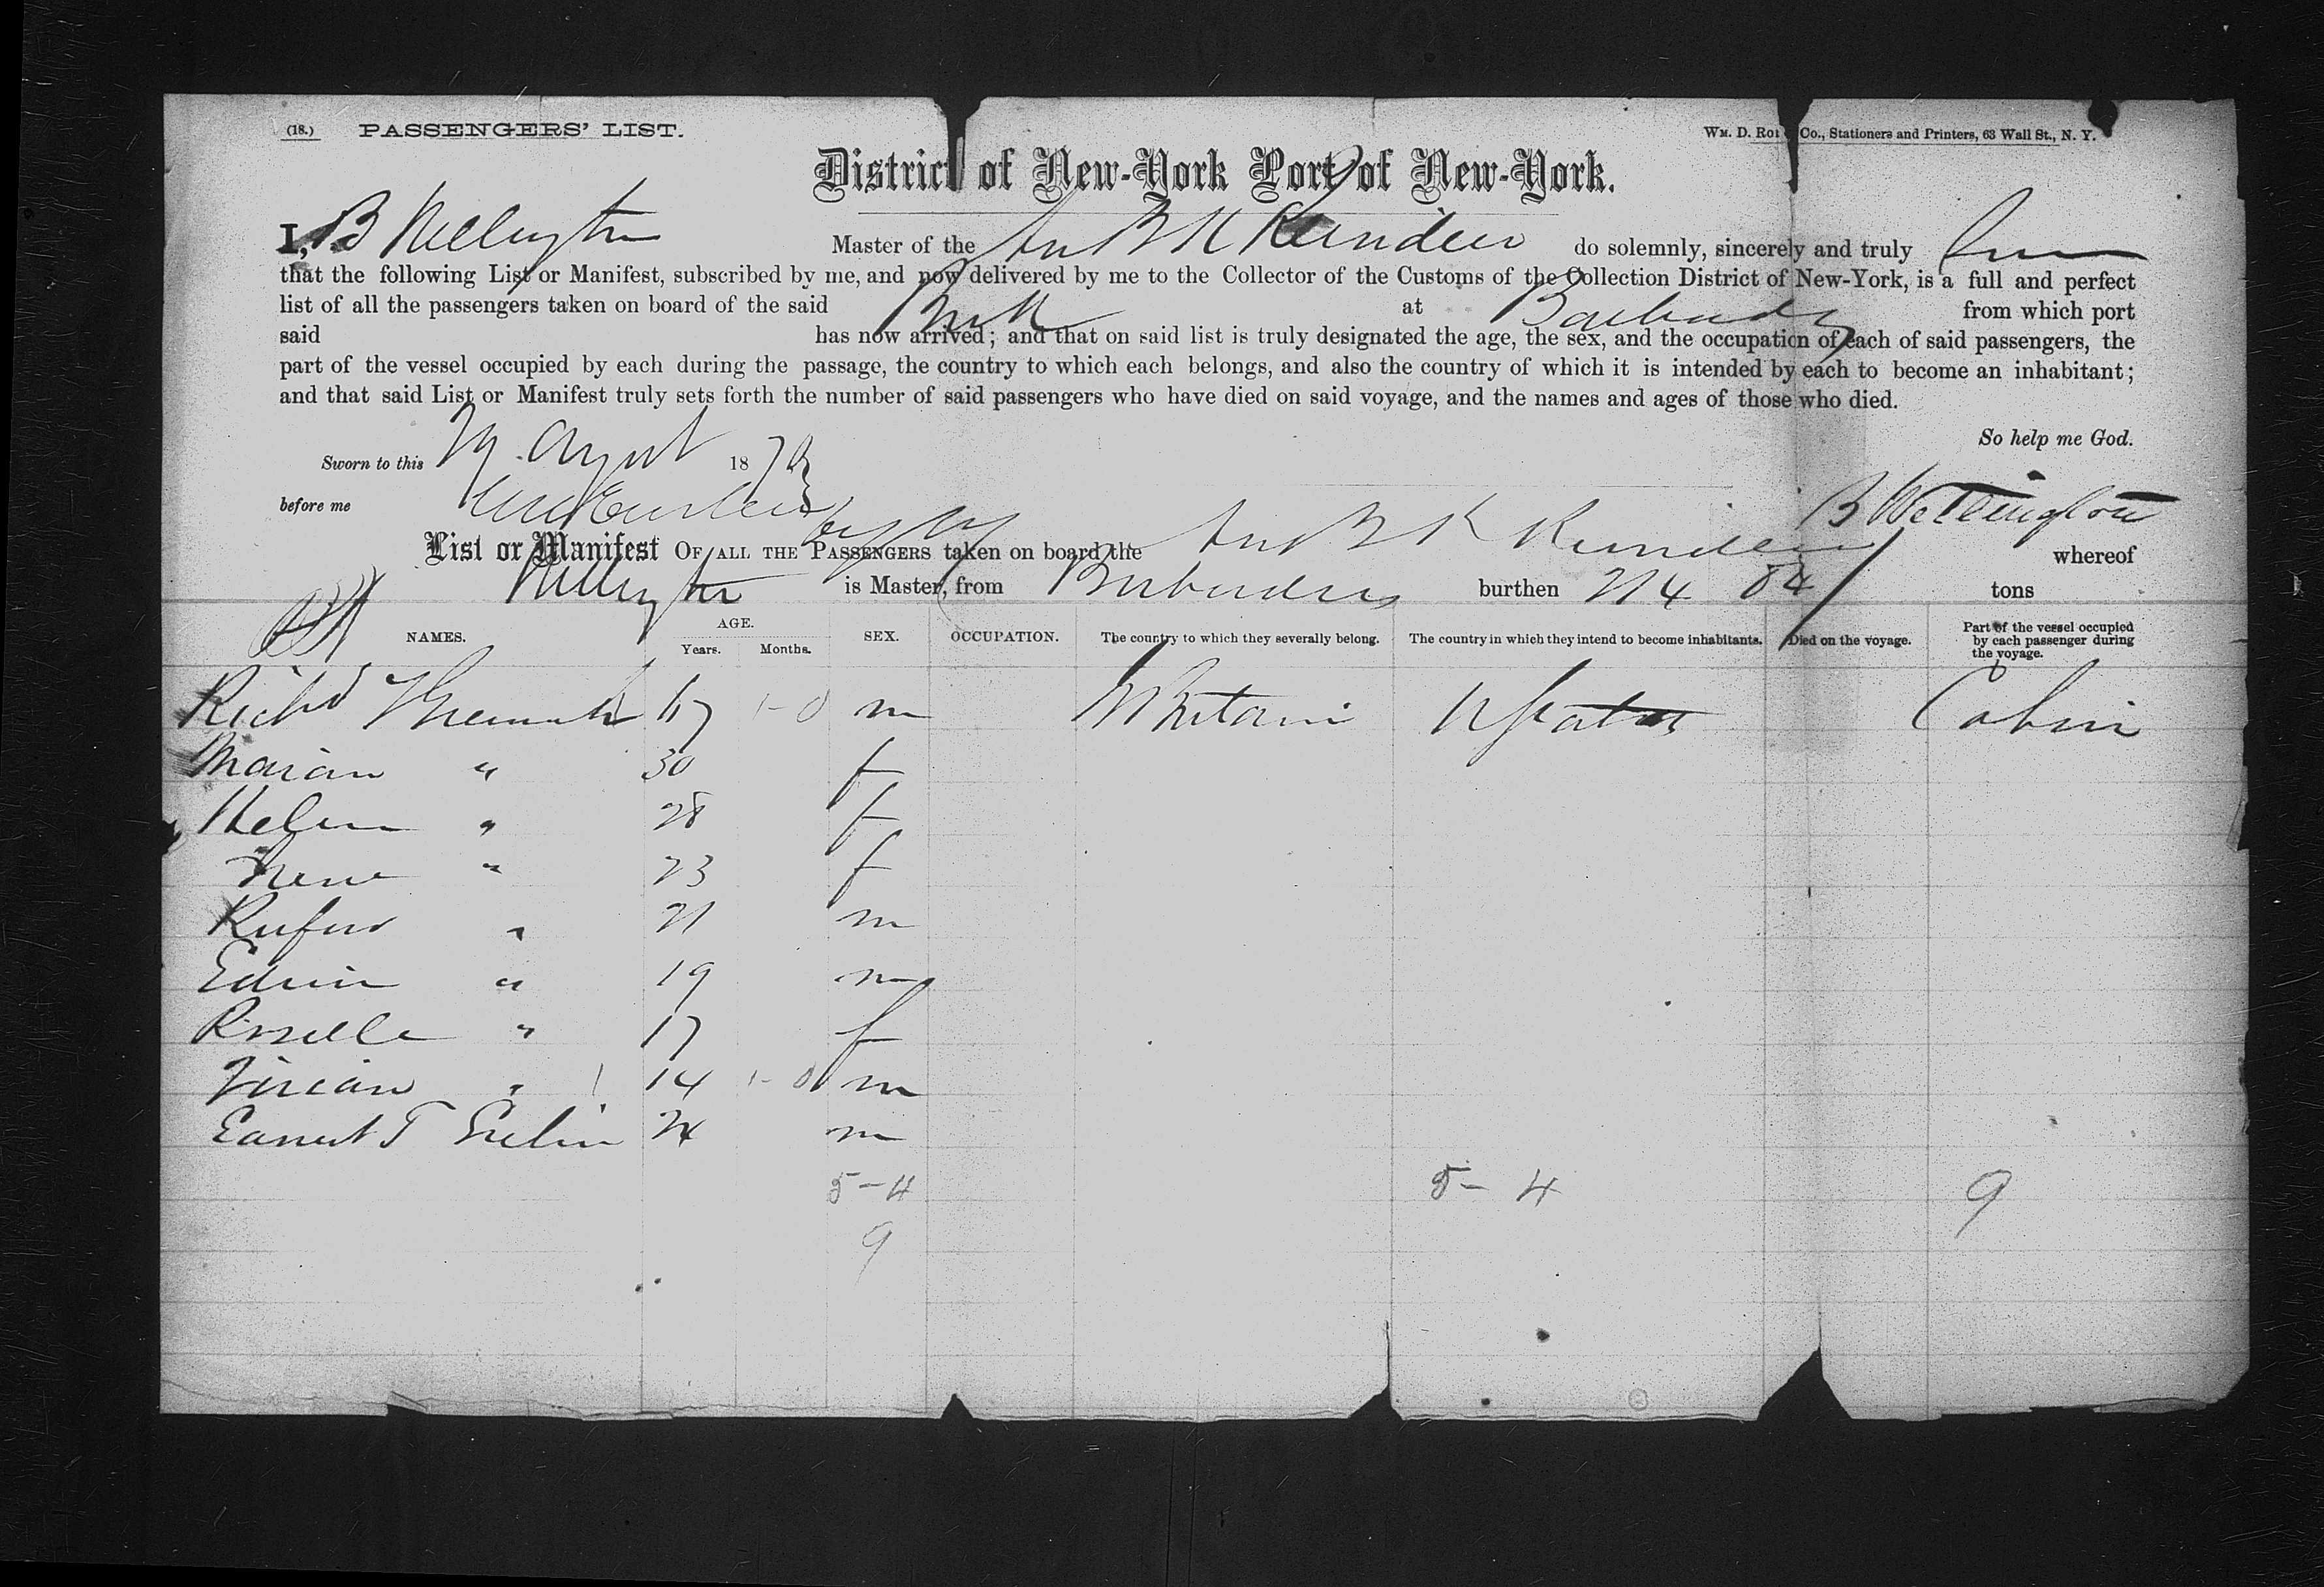 (18.) PASSENGERS' LIST. WM. D. Co., Stationers and Printers, 63 Wall St., N. Y.
District of New-York Port of New-York.
I, B Wellington Master of the do solemnly, sincerely and truly
that the following List or Manifest, subscribed by me, and now delivered by me to the Collector of the Customs of the Collection District of New-York, is a full and perfect
list of all the passengers taken on board of the said at Barbados from which port
said has now arrived; and that on said list is truly designated the age, the sex, and the occupation of each of said passengers, the
part of the vessel occupied by each during the passage, the country to which each belongs, and also the country of which it is intended by each to become an inhabitant;
and that said List or Manifest truly sets forth the number of said passengers who have died on said voyage, and the names and ages of those who died.
So help me God.
Sworn to this August 18
before me B Wellington
List or Manifest OF ALL THE PASSENGERS taken on board the whereof
Wellington is Master, from Barbados burthen 84 tons
NAMES. AGE. Years. Months. SEX. OCCUPATION. The country to which they severally belong. The country in which they intend to become inhabitants. Died on the voyage. Part of the vessel occupied by each passenger during the voyage.
Richd m U States Cabin
Marian " 30 f
Helen " 28 f
Irene " 23 f
Rufus " 21 m
Edwin " 19 m
Rosella " 17 f
Vivian " 14 m
T 24 m
5-4 5-4 9
9